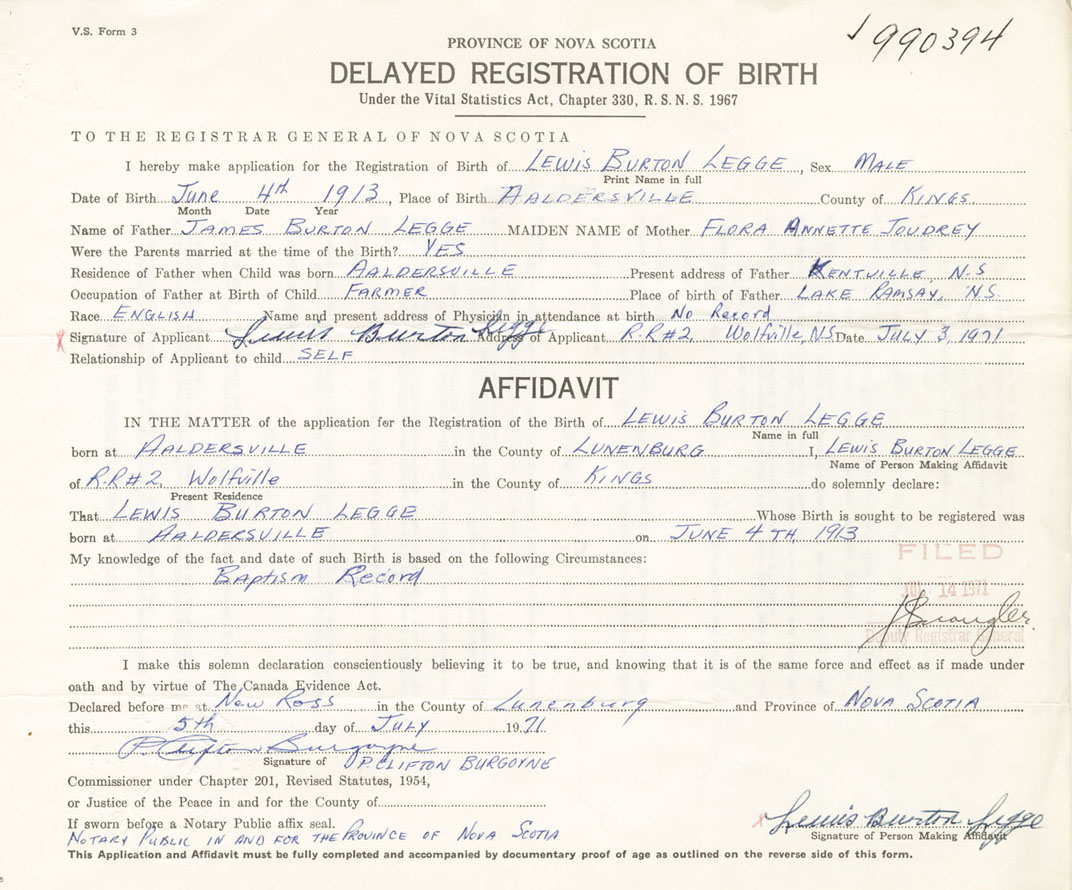 V.S. Form 3
990394
PROVINCE OF NOVA SCOTIA
DELAYED REGISTRATION OF BIRTH
Under the Vital Statistics Act, Chapter 330, R. S. N. S. 1967
TO THE REGISTRAR GENERAL OF NOVA SCOTIA
I hereby make application for the Registration of Birth of LEWIS BURTON LEGGE, Sex MALE
Print Name in full
Date of Birth June 4th 1913, Place of Birth AALDERSVILLE County of KINGS
Month Date Year
Name of Father JAMES BURTON LEGGE MAIDEN NAME of Mother FLORA ANNETTE JOUDREY
Were the Parents married at the time of the Birth? YES
Residence of Father when Child was born AALDERSVILLE Present address of Father KENTVILLE N.S
Occupation of Father at Birth of Child FARMER Place of birth of Father LAKE RAMSAY, N.S.
Race ENGLISH Name and present address of Physician in attendance at birth No Record
Signature of Applicant Lewis Burton Legge Address of Applicant R.R#2, Wolfville, N.S. Date JULY 3, 1971
Relationship of Applicant to child SELF
AFFIDAVIT
IN THE MATTER of the application for the Registration of the Birth of LEWIS BURTON LEGGE
Name in full
born at AALDERSVILLE in the County of LUNENBURG I, LEWIS BURTON LEGGE
Name of Person Making Affidavit
of R.R#2, Wolfville in the County of KINGS do solemnly declare:
Present Residence
That LEWIS BURTON LEGGE Whose Birth is sought to be registered was
born at AALDERSVILLE on JUNE 4TH, 1913
My knowledge of the fact and date of such Birth is based on the following Circumstances:
FILED
Baptism Record
JUL 14 1971
Deputy Registrar General
I make this solemn declaration conscientiously believing it to be true, and knowing that it is of the same force and effect as if made under
oath and by virtue of The Canada Evidence Act.
Declared before me at New Ross in the County of Lunenburg and Province of NOVA SCOTIA
this 5th day of JULY 1971
P. Clifton Burgoyne
Signature of P. CLIFTON BURGOYNE
Commissioner under Chapter 201, Revised Statutes, 1954,
or Justice of the Peace in and for the County of
If sworn before a Notary Public affix seal.
NOTARY PUBLIC IN AND FOR THE PROVINCE OF NOVA SCOTIA
Lewis Burton Legge
Signature of Person Making Affidavit
This Application and Affidavit must be fully completed and accompanied by documentary proof of age as outlined on the reverse side of this form.